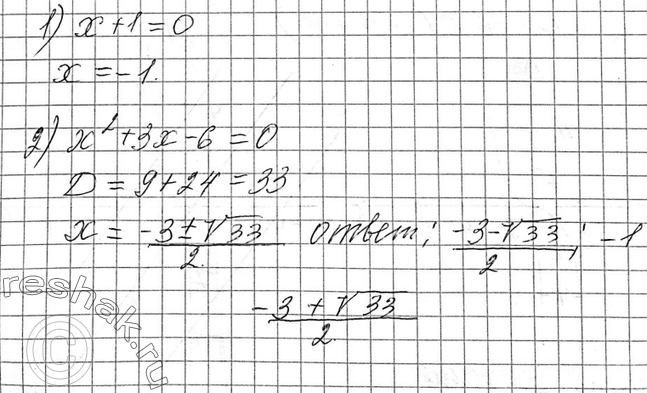 1) x + 1 = 0
x = -1.
2) x² + 3x - 6 = 0
D = 9 + 24 = 33
x = (-3 ± √33)/2. ответ: (-3 - √33)/2; -1
(-3 + √33)/2.
reshak.ru
©